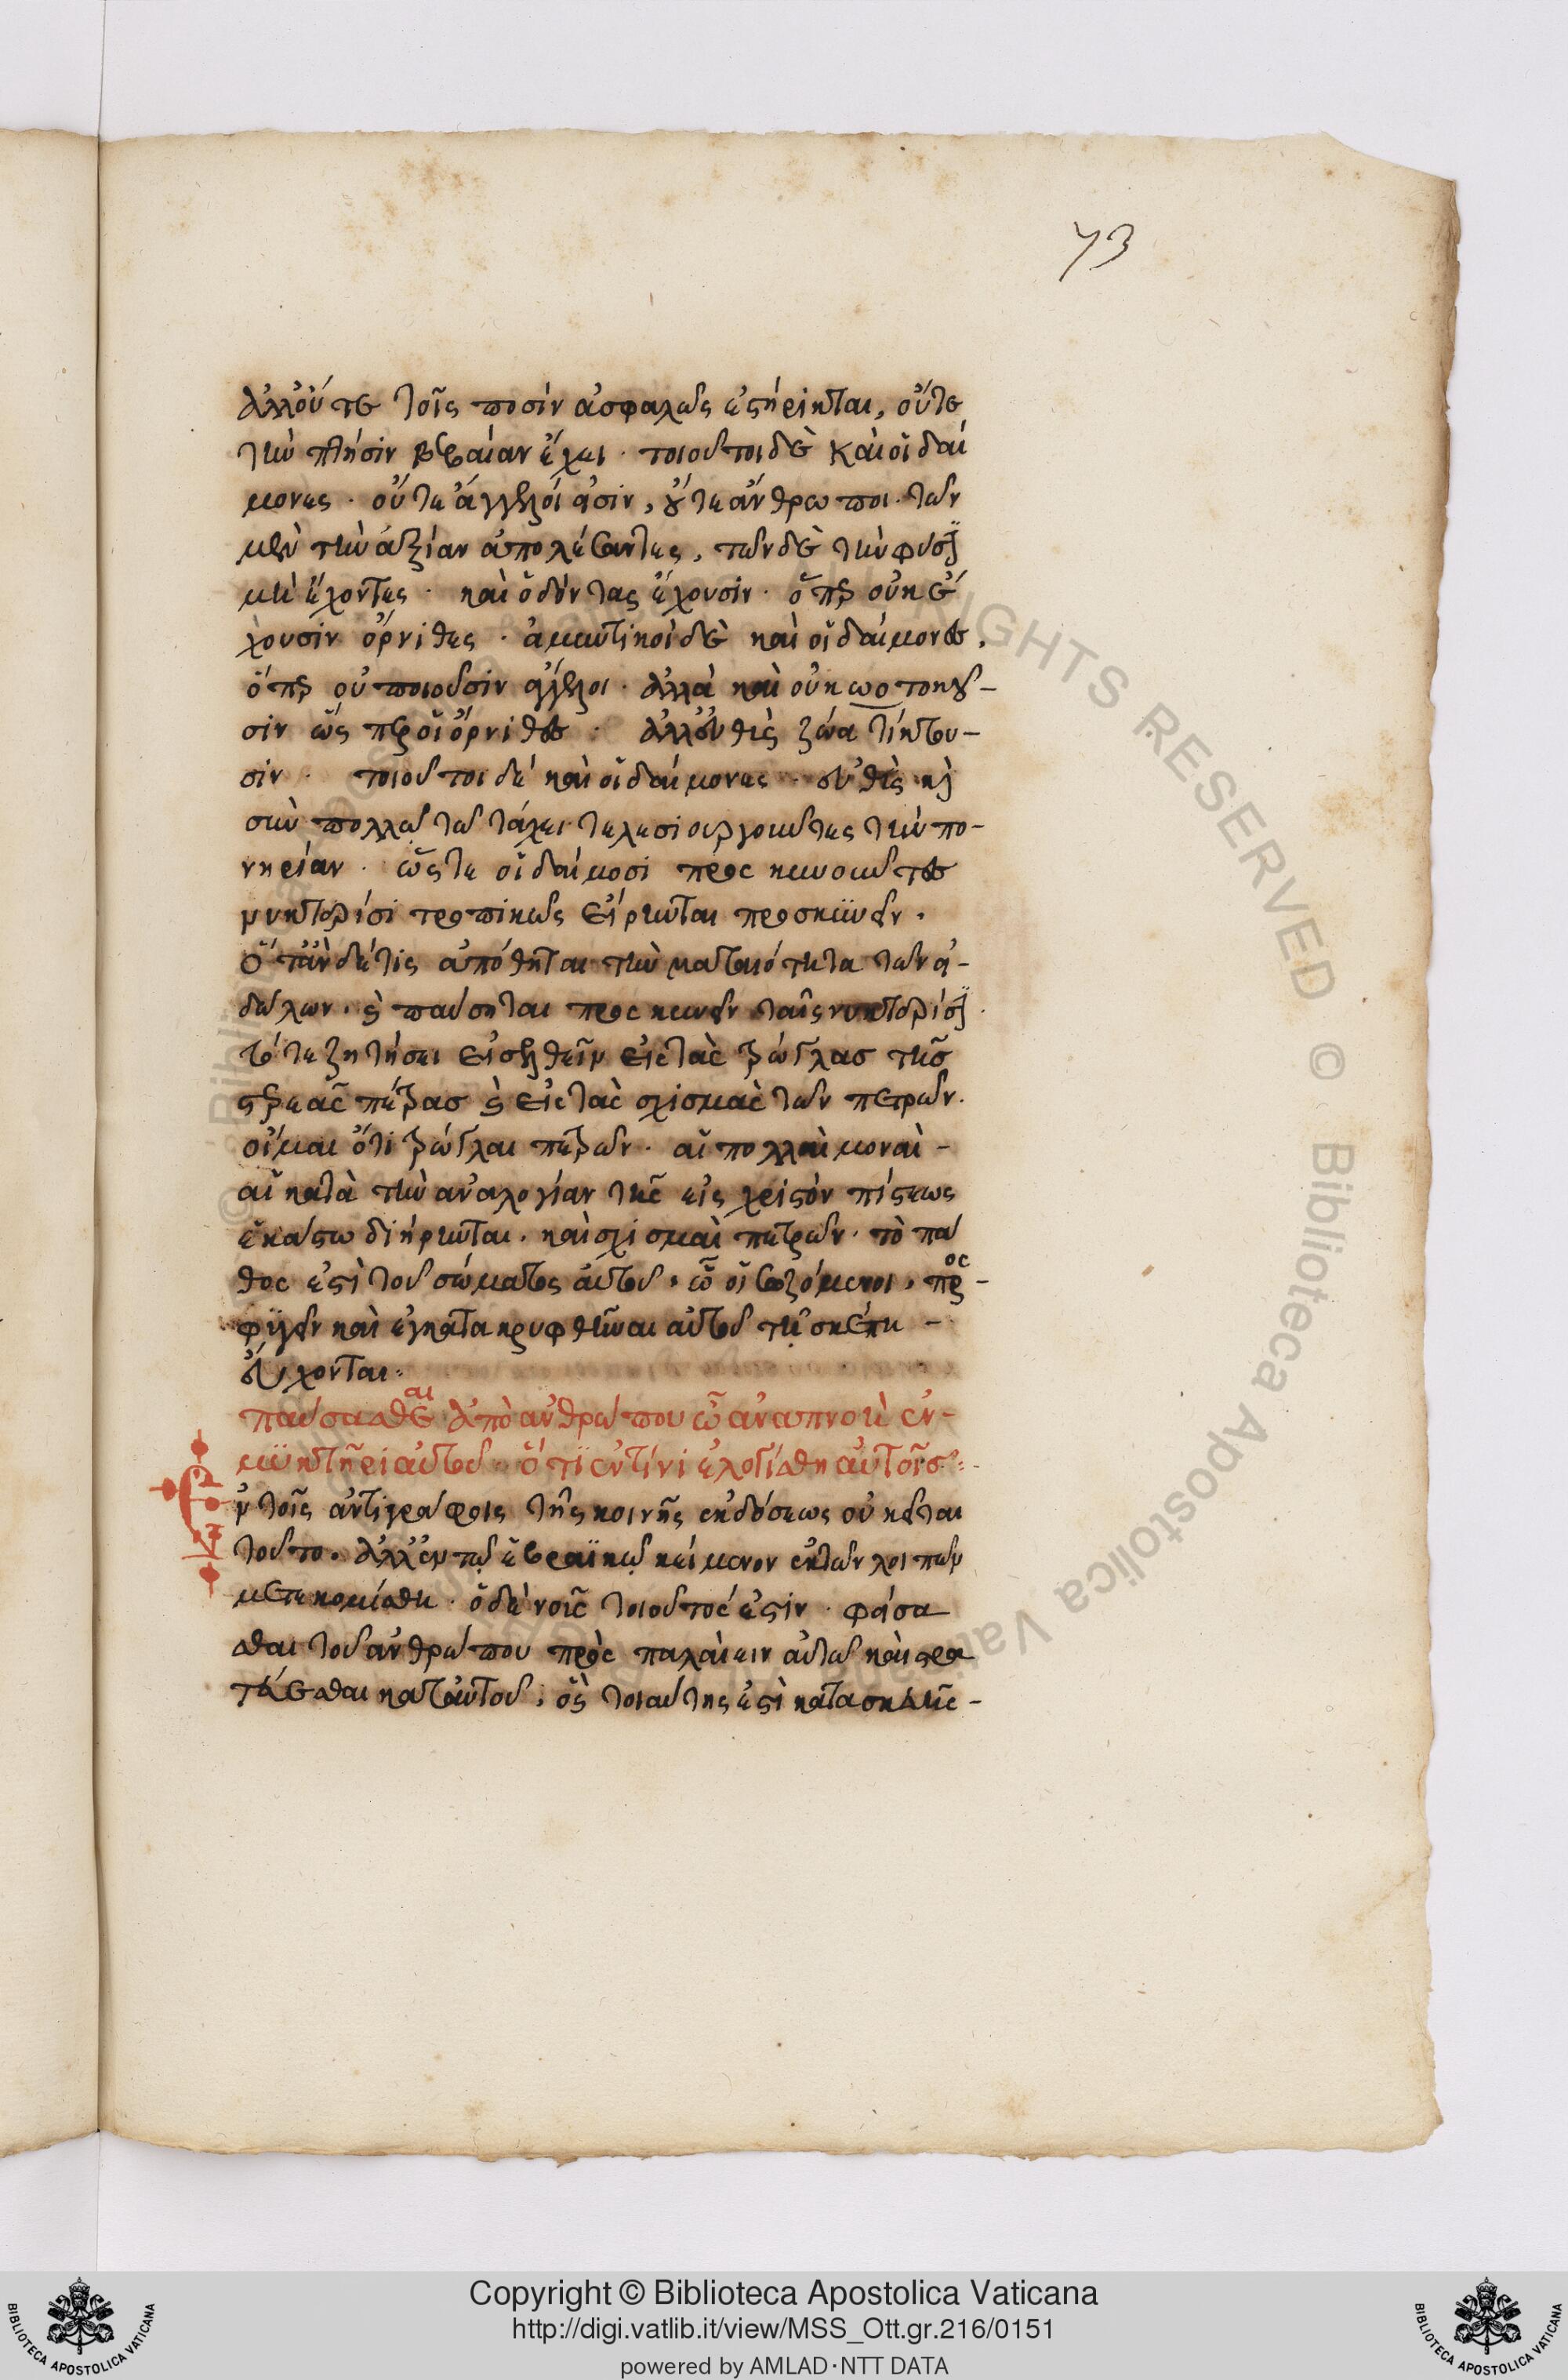 73
ἀλλ' οὔτε τοῖς ποσὶν ἀσφαλῶς ἐστήρικται, οὔτε
τὴν πτῆσιν βεβαίαν ἔχει. τοιοῦτοι δὲ καὶ οἱ δαί
μονες. οὔτε ἄγγελοί εἰσιν, οὔτε ἄνθρωποι. τῶν
μὲν τὴν ἀξίαν ἀπολέσαντες, τῶν δὲ τὴν φύσιν
μὴ ἔχοντες. καὶ ὀδόντας ἔχουσιν. ὅπερ οὐκ ἔ
χουσιν ὄρνιθες. ἀμυντικοὶ δὲ καὶ οἱ δαίμονες.
ὅπερ οὐ ποιοῦσιν ἄγγελοι. ἀλλὰ καὶ οὐκ ὠοτοκοῦ-
σιν ὥσπερ οἱ ὄρνιθες. ἀλλ' εὐθὺς ζῶα τίκτου-
σιν. τοιοῦτοι δὲ καὶ οἱ δαίμονες. εὐθὺς καὶ
σὺν πολλῶ τῶ τάχει τελεσιουργοῦντες τὴν πο-
νηρίαν. ὥστε οἱ δαίμοσι προσκυνοῦντες
νυκτερίσι τροπικῶς εἴρηνται προσκυνεῖν.
ὅταν δέ τις ἀπόθηται τὴν ματαιότητα τῶν εἰ-
δώλων. καὶ παύσηται προσκυνεῖν ταῖς νυκτερίσιν.
τότε ζητήσει εἰσελθεῖν εἰς τὰς τρώγλας τῆς
στερεᾶς πέτρας καὶ εἰς τὰς σχισμὰς τῶν πετρῶν.
οἶμαι ὅτι τρῶγλαι πετρῶν. αἱ πολλαὶ μοναὶ-
αἱ κατὰ τὴν ἀναλογίαν τῆς εἰς χριστὸν πίστεως
ἑκάστω διήρηνται. καὶ σχισμαὶ πετρῶν. τὸ πά
θος ἐστὶ τοῦ σώματος αὐτοῦ. ὧ οἱ σωζόμενοι, προσ-
φυγεῖν καὶ ἐγκατακρυφθῆναι αὐτοῦ τῇ σκέπη-
εὔχονται.
παύσασθε ἀπὸ ἀνθρώπου ὧ ἀναπνοὴ ἐν-
μυκτῆρι αὐτοῦ. ὅτι ἐν τίνι ἐλογίσθη αὐτοῖς.
Ἐν τοῖς ἀντιγράφοις τῆς κοινῆς ἐκδόσεως οὐ κεῖται
τοῦτο. ἀλλ' ἐν τῷ ἑβραϊκῷ κείμενον ἐκ τῶν λοιπῶν
μετεκομίσθη. ὁ δὲ νοῦς τοιοῦτός ἐστιν. φείσα
σθαι τοῦ ἀνθρώπου πρὸς παλαίειν αὐτῶ καὶ στρα
τεύεσθαι κατ' αὐτοῦ, ὃς τοιαύτης ἐστὶ κατασκευῆς-
Copyright © Biblioteca Apostolica Vaticana
http://digi.vatlib.it/view/MSS_Ott.gr.216/0151
powered by AMLAD·NTT DATA